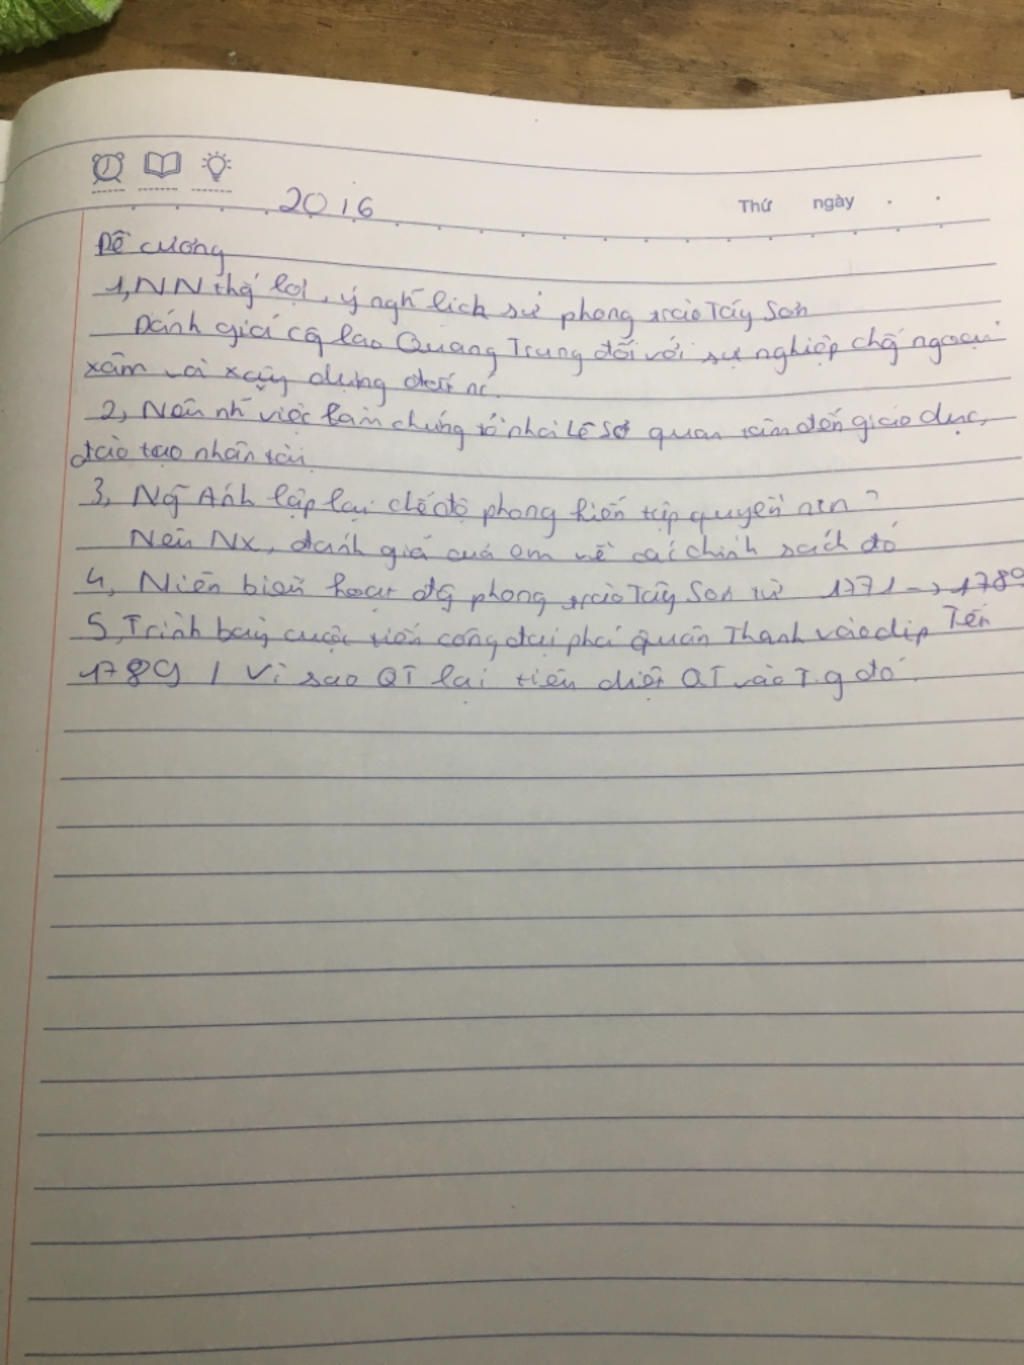 2016
Thứ ngày
Đề cương
1, NN thg lợi, ý ngh lịch sử phong trào Tây Sơn
Đánh giá cg lao Quang Trung đối với sự nghiệp chg ngoại
xâm và xây dựng đất nc.
2, Nêu nh việc làm chứng tỏ nhà Lê Sơ quan tâm đến giáo dục,
đào tạo nhân tài.
3, Ng Ánh lập lại chế độ phong kiến tập quyền ntn?
Nêu Nx, đánh giá của em về các chính sách đó
4, Niên biểu hoạt đg phong trào Tây Sơn từ 1771 -> 1789
5, Trình bày cuộc tiến công đại phá quân Thanh vào dịp Tết
1789 / Vì sao QT lại tiêu diệt QT vào T.g đó.